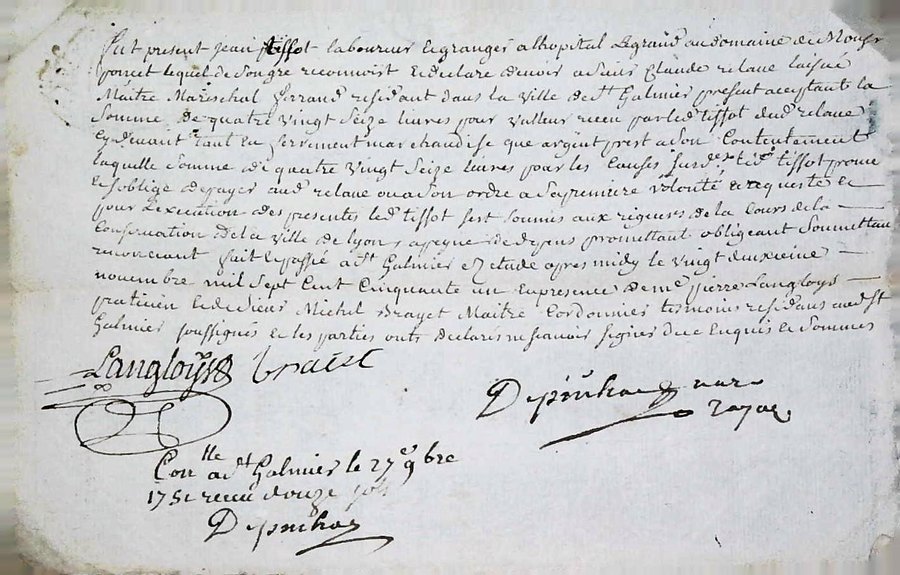 fut present jean tissot laboureur et granger a lhopital legrand audomaine de Monsr
poncet lequel de son gre reconnoist et declare devoir a
Maitre Mareschal ferrand residant dans la ville de St Galmier present acceptant la
Somme de quatre vingt Seize livres pour valleur receu par led tissot dud relave
cydevant tant en ferrement marchandise que argent prest a son Contentement
laquelle Somme de quatre vingt Seize livres pour les Causes susdes led tissot promet
et soblige de payer aud relave ou a son ordre a sa premiere volonté et requeste et
pour Lexecution des presentes led tissot sest soumis aux rigeurs de la Cours de la
Conservation de la ville de lyon, a peyne de depens promettant obligeant Soumettant
renonceant fait et passé a St Galmier Etude apres midy le vingt deuxieme
novembre mil Sept Cent Cinquante un en presence de me pierre Langloys
praticien et de Sieur Michel Brayet Maitre Cordonnier temoins residens aud St
Galmier soussignés et les parties onts declarés ne scavoir signer de ce Enquis et Sommés
Langloys braiet
notaire
royal
Conlle a St Galmier le 27e 9bre
1751 receu douze sols